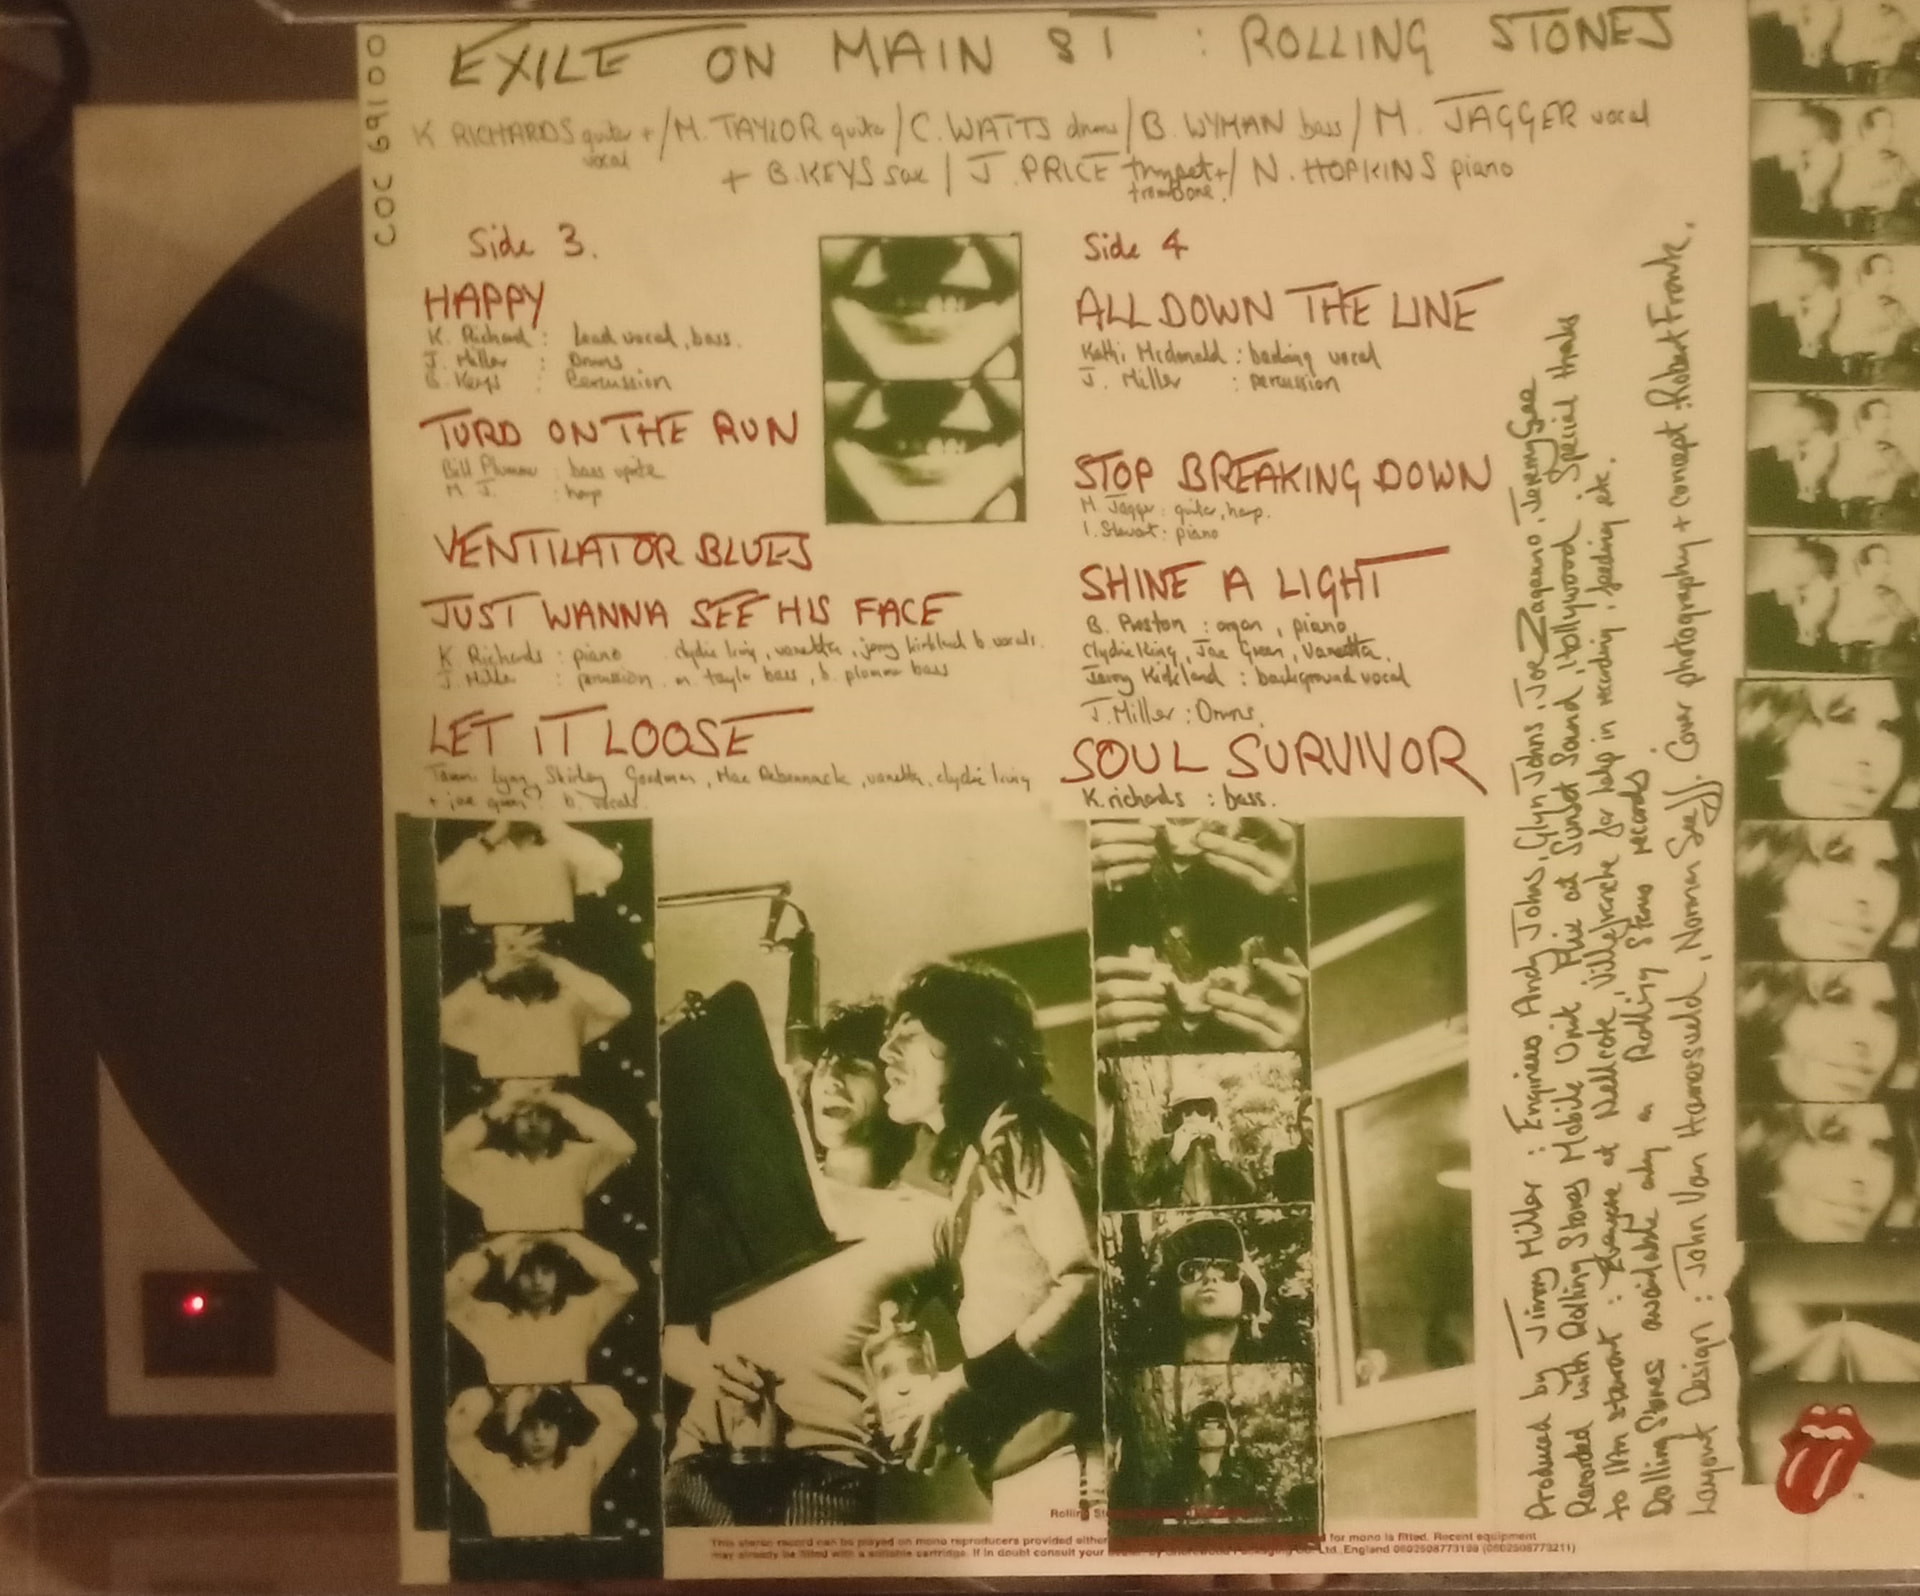 COC 69100
EXILE ON MAIN ST : ROLLING STONES
K RICHARDS guitar + vocal / M. TAYLOR guitar / C. WATTS drums / B. WYMAN bass / M. JAGGER vocal
+ B. KEYS sax / J. PRICE trumpet + trombone. / N. HOPKINS piano
Side 3.
HAPPY
K. Richard : Lead vocal, bass.
J. Miller : Drums
B. Keys : Percussion
TURD ON THE RUN
Bill Plummer : bass uprite
M. J. : harp
VENTILATOR BLUES
JUST WANNA SEE HIS FACE
K Richards : piano clydie king, vanetta, jerry kirkland b. vocals.
J. Miller : percussion. m. taylor bass, b. plummer bass
LET IT LOOSE
Tammi Lynn, Shirley Goodman, Mac Rebennack, vanetta, clydie king
+ joe green : b. vocals.
Side 4
ALL DOWN THE LINE
Kathi Mcdonald : backing vocal
J. Miller : percussion
STOP BREAKING DOWN
M. Jagger : guitar, harp.
I. Stewart : piano
SHINE A LIGHT
B. Preston : organ, piano
Clydie King, Joe Green, Vanetta,
Jerry Kirkland : background vocal
J. Miller : Drums.
SOUL SURVIVOR
K. richards : bass.
Produced by Jimmy Miller : Engineers Andy Johns, Glyn Johns, Joe Zaganno, Jeremy Gee
Recorded with Rolling Stones Mobile Unit. Mix at Sunset Sound, Hollywood. Special thanks
to Ian stewart : Everyone at Nellcote, Villefranche for help in recording, feeding etc.
Rolling Stones available only on Rolling Stones records
Layout Design : John Van Hamersveld, Norman Seeff. Cover photography + concept : Robert Frank.
Rolling
This stereo record can be played on mono reproducers provided either for mono is fitted. Recent equipment
may already be fitted with a suitable cartridge. If in doubt consult your Ltd., England 0602508773198 (0602508773211)